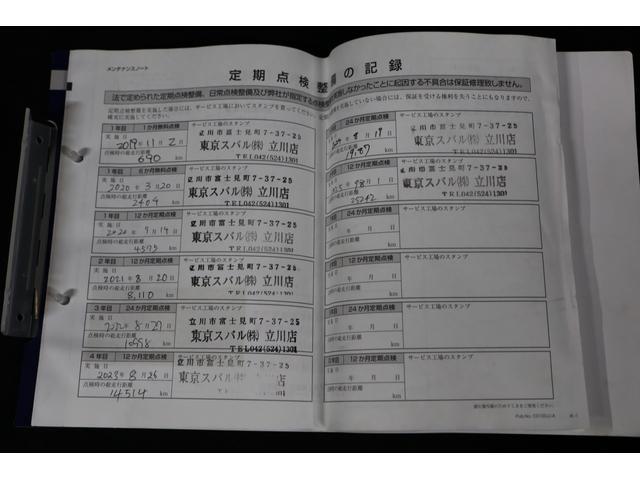 メンテナンスノート
定期点検整備の記録
法で定められた定期点検整備、日常点検整備及び弊社が指定する点検
実施しなかったことに起因する不具合は保証修理致しません。
1年目 1か月無料点検
サービス工場のスタンプ
実施日
2019年11月2日
立川市富士見町7-37-25
東京スバル㈱ 立川店
TEL042(524)1301
点検時の総走行距離
690 km
1年目 6か月無料点検
サービス工場のスタンプ
実施日
2020年3月20日
立川市富士見町7-37-25
東京スバル㈱ 立川店
TEL042(524)1301
点検時の総走行距離
2404 km
1年目 12か月定期点検
サービス工場のスタンプ
実施日
2020年9月14日
立川市富士見町7-37-25
東京スバル㈱ 立川店
TEL042(524)1301
点検時の総走行距離
4575 km
2年目 12か月定期点検
サービス工場のスタンプ
実施日
2021年8月20日
立川市富士見町7-37-25
東京スバル㈱ 立川店
TEL042(524)1301
点検時の総走行距離
8,110 km
3年目 24か月定期点検
サービス工場のスタンプ
実施日
立川市富士見町7-37-25
東京スバル㈱ 立川店
TEL042(524)1301
点検時の総走行距離
km
4年目 12か月定期点検
サービス工場のスタンプ
実施日
2023年8月26日
立川市富士見町7-37-25
東京スバル㈱ 立川店
点検時の総走行距離
14514 km
24か月定期点検
サービス工場のスタンプ
立川市富士見町7-37-25
東京スバル㈱ 立川店
TEL042(524)1301
km
12か月定期点検
サービス工場のスタンプ
立川市富士見町7-37-25
東京スバル㈱ 立川店
TEL042(524)1301
km
12か月定期点検
サービス工場のスタンプ
年 月 日
km
24か月定期点検
サービス工場のスタンプ
年 月 日
km
12か月定期点検
サービス工場のスタンプ
年 月 日
km
12か月定期点検
サービス工場のスタンプ
年 月 日
km